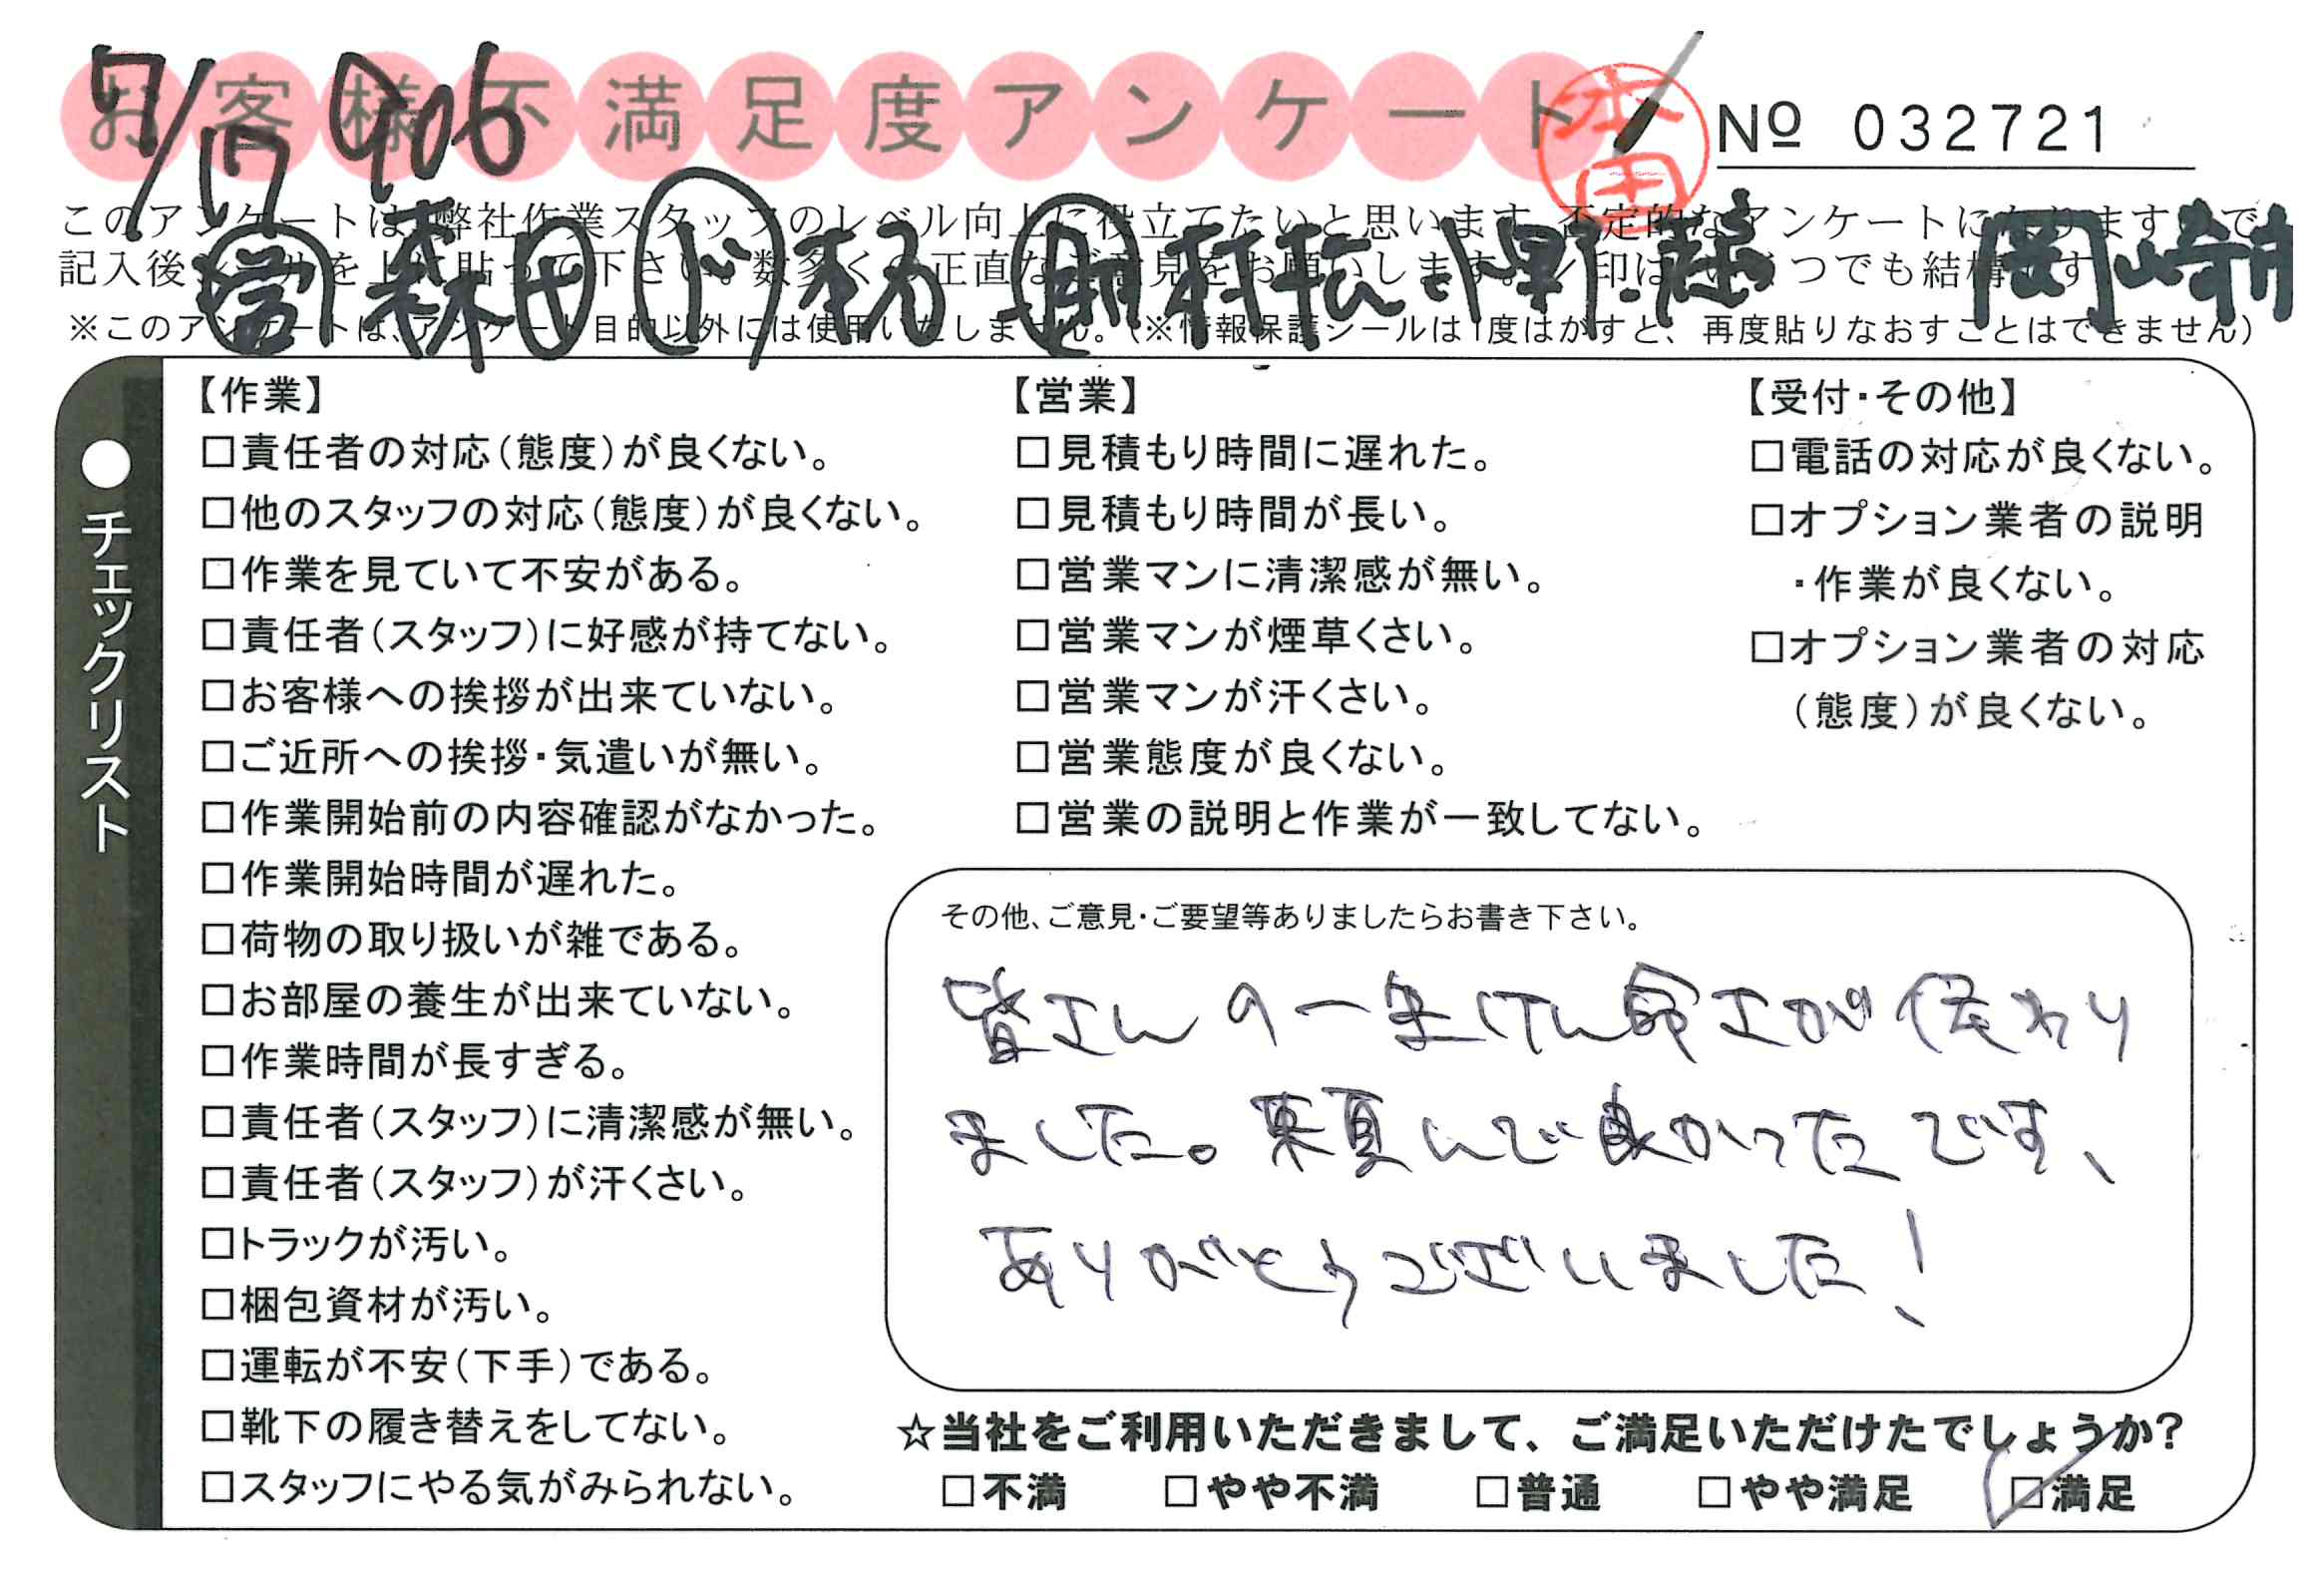 お客様不満足度アンケート
7/17 906
本田
№ 032721
このアンケートは、弊社作業スタッフのレベル向上に役立てたいと思います。否定的なアンケートになりますので
記入後シールを上に貼って下さい。数多くの正直なご意見をお願いします。レ印はいくつでも結構です
営 森田 ド 助 村松 小野 岡崎
※このアンケートは、アンケート目的以外には使用いたしません。(※情報保護シールは1度はがすと、再度貼りなおすことはできません)
●チェックリスト
【作業】
□責任者の対応(態度)が良くない。
□他のスタッフの対応(態度)が良くない。
□作業を見ていて不安がある。
□責任者(スタッフ)に好感が持てない。
□お客様への挨拶が出来ていない。
□ご近所への挨拶・気遣いが無い。
□作業開始前の内容確認がなかった。
□作業開始時間が遅れた。
□荷物の取り扱いが雑である。
□お部屋の養生が出来ていない。
□作業時間が長すぎる。
□責任者(スタッフ)に清潔感が無い。
□責任者(スタッフ)が汗くさい。
□トラックが汚い。
□梱包資材が汚い。
□運転が不安(下手)である。
□靴下の履き替えをしてない。
□スタッフにやる気がみられない。
【営業】
□見積もり時間に遅れた。
□見積もり時間が長い。
□営業マンに清潔感が無い。
□営業マンが煙草くさい。
□営業マンが汗くさい。
□営業態度が良くない。
□営業の説明と作業が一致してない。
【受付・その他】
□電話の対応が良くない。
□オプション業者の説明
・作業が良くない。
□オプション業者の対応
(態度)が良くない。
その他、ご意見・ご要望等ありましたらお書き下さい。
皆さんの一生けん命さが伝わり
ました。頼んで良かったです、
ありがとうございました!
☆当社をご利用いただきまして、ご満足いただけたでしょうか?
□不満 □やや不満 □普通 □やや満足 ☑満足